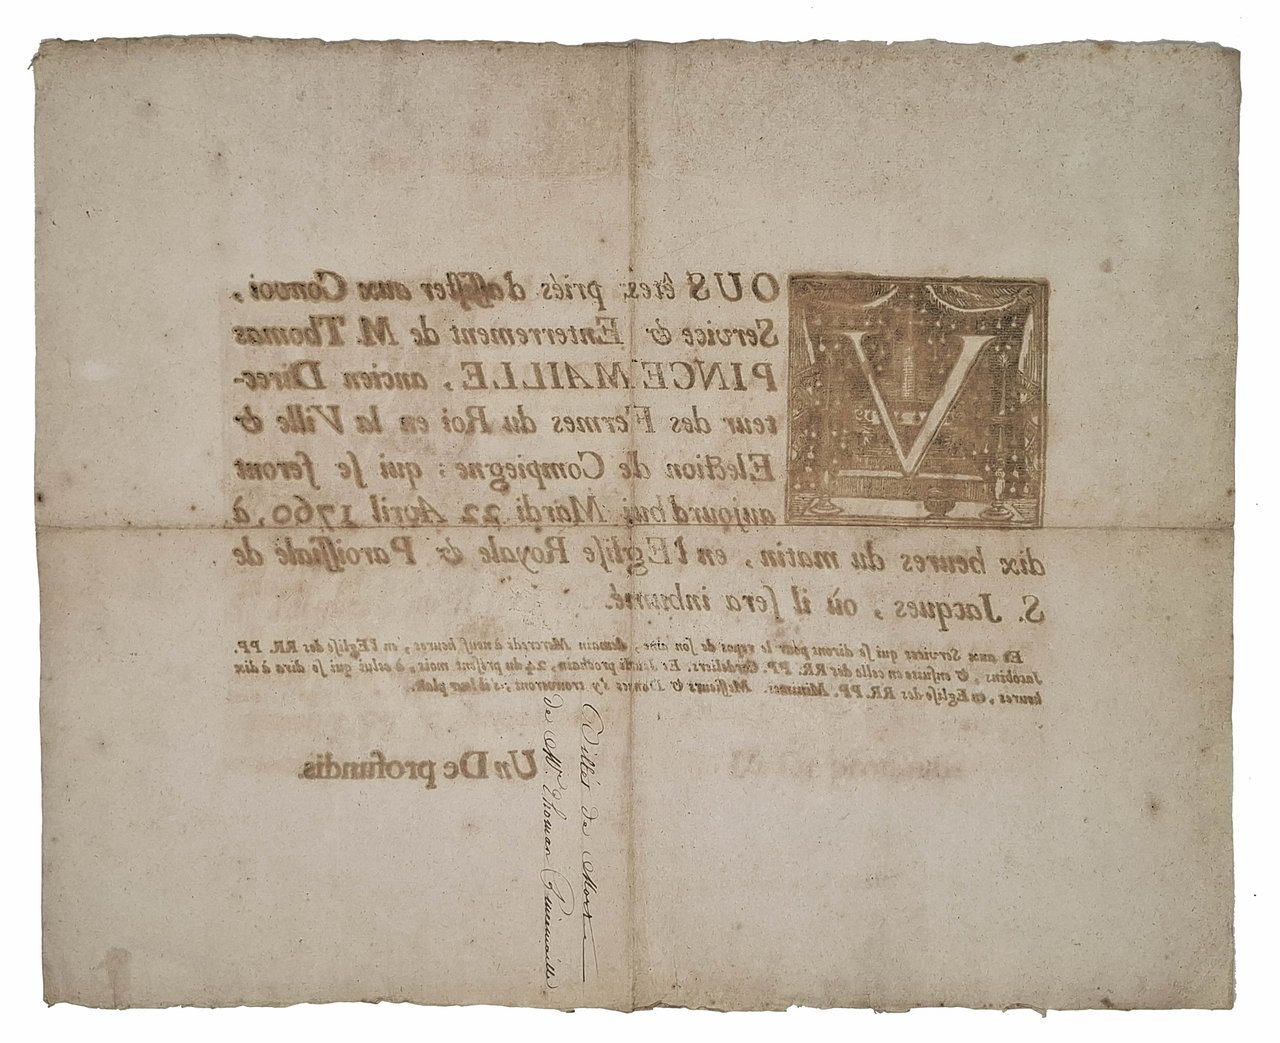 VOUS êtes priés d'aſſiſter aux Convoi,
Service & Enterrement de M. Thomas
PINCEMAILLE, ancien Direc-
teur des Fermes du Roi en la Ville &
Election de Compiegne; qui ſe feront
aujourd'hui Mardi 22 Avril 1760, à
dix heures du matin, en l'Egliſe Royale & Paroiſſiale de
S. Jacques, où il ſera inhumé.
Et aux Services qui ſe diront pour le repos de ſon ame, demain Mercredi à neuf heures, en l'Egliſe des RR. PP.
Jacobins, & enſuite en celle des RR. PP. Cordeliers. Et Jeudi prochain, 24 du préſent mois, à celui qui ſe dira à dix
heures, en l'Egliſe des RR. PP. Minimes. Meſſieurs & Dames s'y trouveront, s'il leur plaît.
Un De profundis.
Billet de Mort
de Mr. Thomas Pincemaille